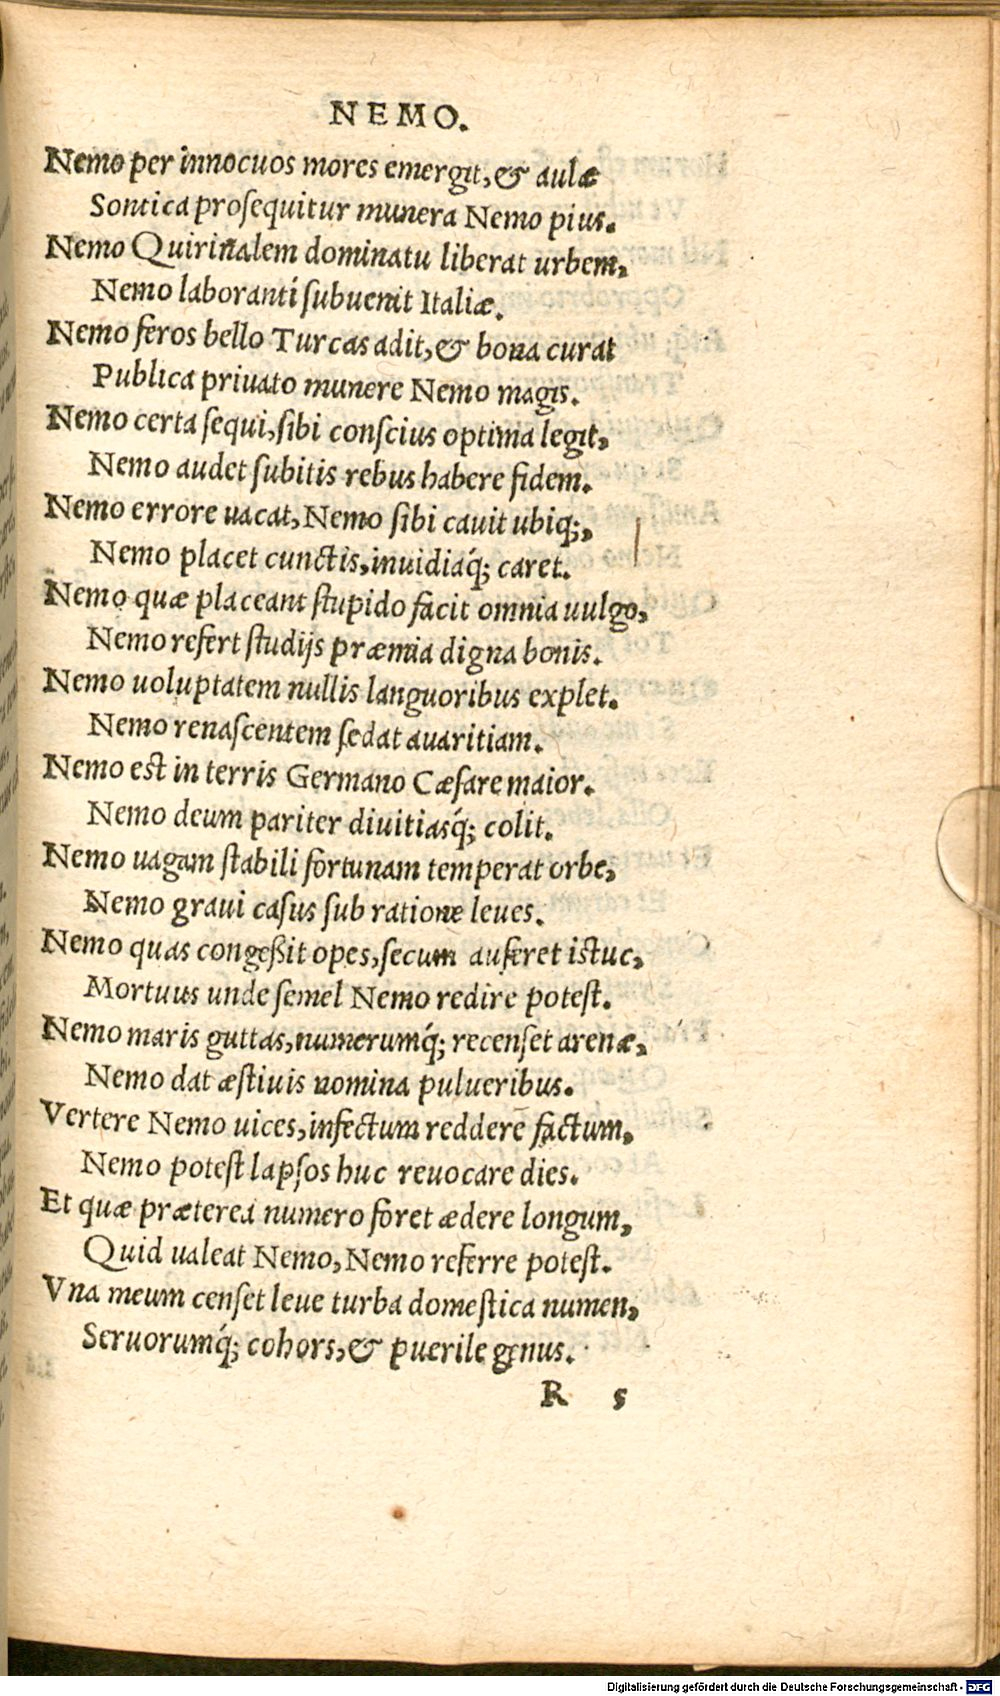 NEMO.
Nemo per innocuos mores emergit, & aulæ
Sontica prosequitur munera Nemo pius.
Nemo Quirinalem dominatu liberat urbem,
Nemo laboranti subuenit Italiæ.
Nemo feros bello Turcas adit, & bona curat
Publica priuato munere Nemo magis.
Nemo certa sequi, sibi conscius optima legit,
Nemo audet subitis rebus habere fidem.
Nemo errore uacat, Nemo sibi cauit ubiq;,
Nemo placet cunctis, inuidiaq́; caret.
Nemo quæ placeant stupido facit omnia uulgo,
Nemo refert studijs præmia digna bonis.
Nemo uoluptatem nullis languoribus explet.
Nemo renascentem sedat auaritiam.
Nemo est in terris Germano Cæsare maior.
Nemo deum pariter diuitiasq́; colit.
Nemo uagam stabili fortunam temperat orbe,
Nemo graui casus sub ratione leues.
Nemo quas congeßit opes, secum auferet istuc,
Mortuus unde semel Nemo redire potest.
Nemo maris guttas, numerumq́; recenset arenæ,
Nemo dat æstiuis nomina pulueribus.
Vertere Nemo uices, infectum reddere factum,
Nemo potest lapsos huc reuocare dies.
Et quæ præterea numero foret ædere longum,
Quid ualeat Nemo, Nemo referre potest.
Vna meum censet leue turba domestica numen,
Seruorumq́; cohors, & puerile genus.
R 5
Digitalisierung gefördert durch die Deutsche Forschungsgemeinschaft - DFG